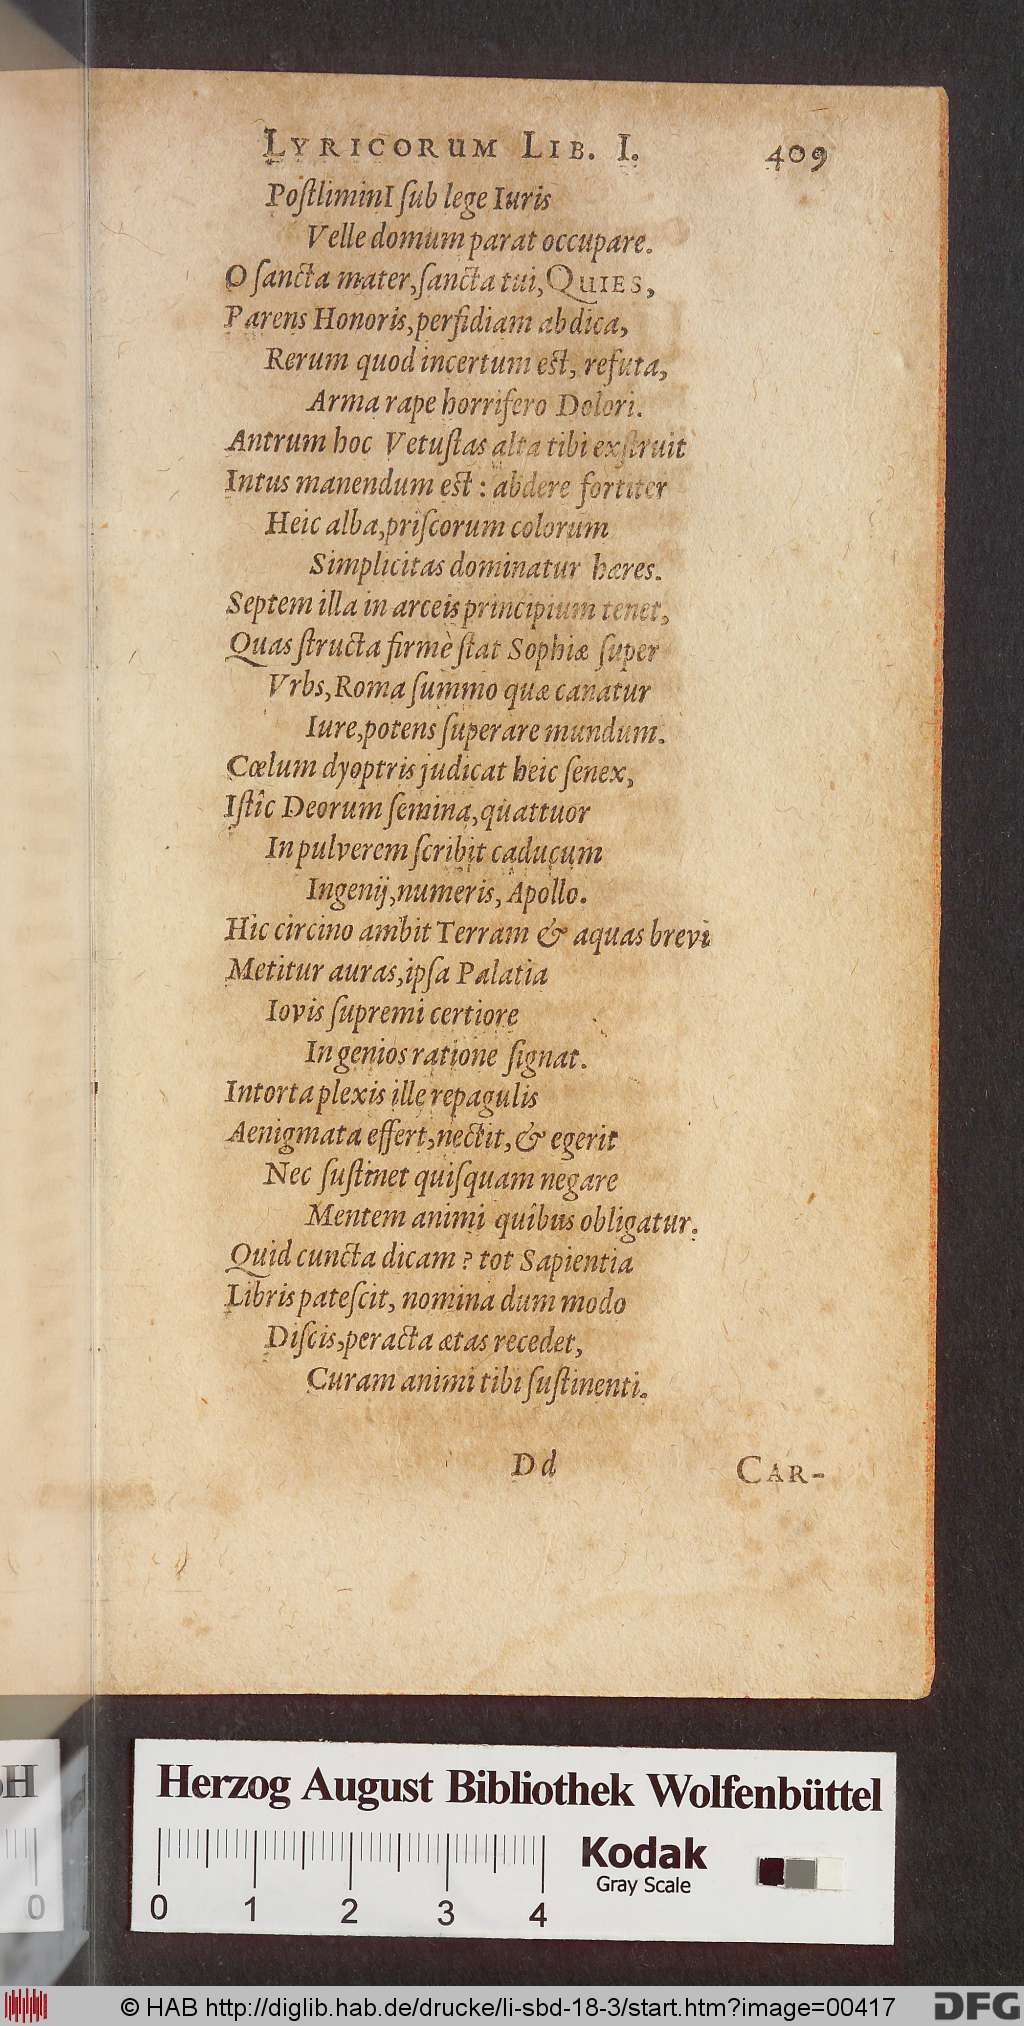 LYRICORUM LIB. I. 409
PostliminI sub lege Iuris
Velle domum parat occupare.
O sancta mater, sancta tui, QUIES,
Parens Honoris, perfidiam abdica,
Rerum quod incertum est, refuta,
Arma rape horrifero Dolori.
Antrum hoc Vetustas alta tibi exstruit
Intus manendum est : abdere fortiter
Heic alba, priscorum colorum
Simplicitas dominatur hæres.
Septem illa in arceis principium tenet,
Quas structa firmè stat Sophiæ super
Vrbs, Roma summo quæ canatur
Iure, potens superare mundum.
Cœlum dyoptris judicat heic senex,
Istîc Deorum semina, quattuor
In pulverem scribit caducum
Ingenij, numeris, Apollo.
Hic circino ambit Terram & aquas brevi
Metitur auras, ipsa Palatia
Iovis supremi certiore
Ingenios ratione signat.
Intorta plexis ille repagulis
Aenigmata effert, nectit, & egerit
Nec sustinet quisquam negare
Mentem animi quîbus obligatur.
Quid cuncta dicam ? tot Sapientia
Libris patescit, nomina dum modo
Discis, peracta ætas recedet,
Curam animi tibi sustinenti.
Dd CAR-
Herzog August Bibliothek Wolfenbüttel
Kodak
Gray Scale
0 1 2 3 4
0
© HAB http://diglib.hab.de/drucke/li-sbd-18-3/start.htm?image=00417
DFG